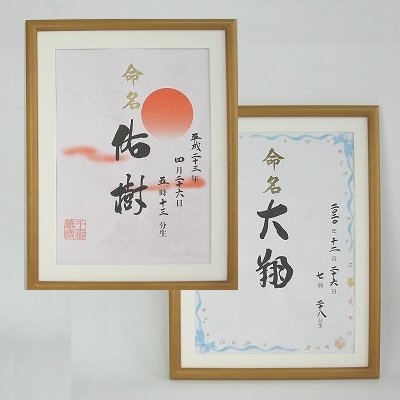 命名
佑樹
平成二十三年
四月二十六日
五時十三分生
命名
大翔
二〇一〇年十二月二十六日
七時二十八分生